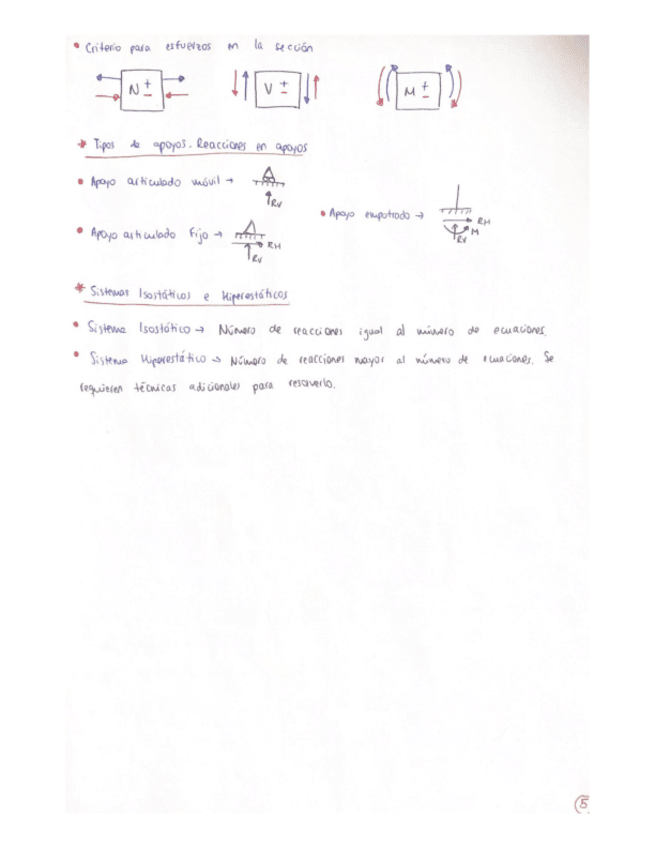 • Criterio para esfuerzos en la sección
N + - V + - M + -
* Tipos de apoyos. Reacciones en apoyos
• Apoyo articulado móvil →
RV
• Apoyo empotrado →
RH
M
RV
• Apoyo articulado Fijo →
RH
RV
* Sistemas Isostáticos e Hiperestáticos
• Sistema Isostático → Número de reacciones igual al número de ecuaciones.
• Sistema Hiperestático → Número de reacciones mayor al número de ecuaciones. Se
requieren técnicas adicionales para resolverlo.
5